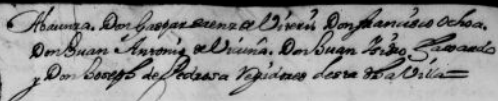 Abaunza. Don Gaspar saenz de Viteri Don francisco ochoa.
Don Juan Antonio de Urvina. Don Juan
y Don Joseph de Pedrosa rexidores desta dha Villa